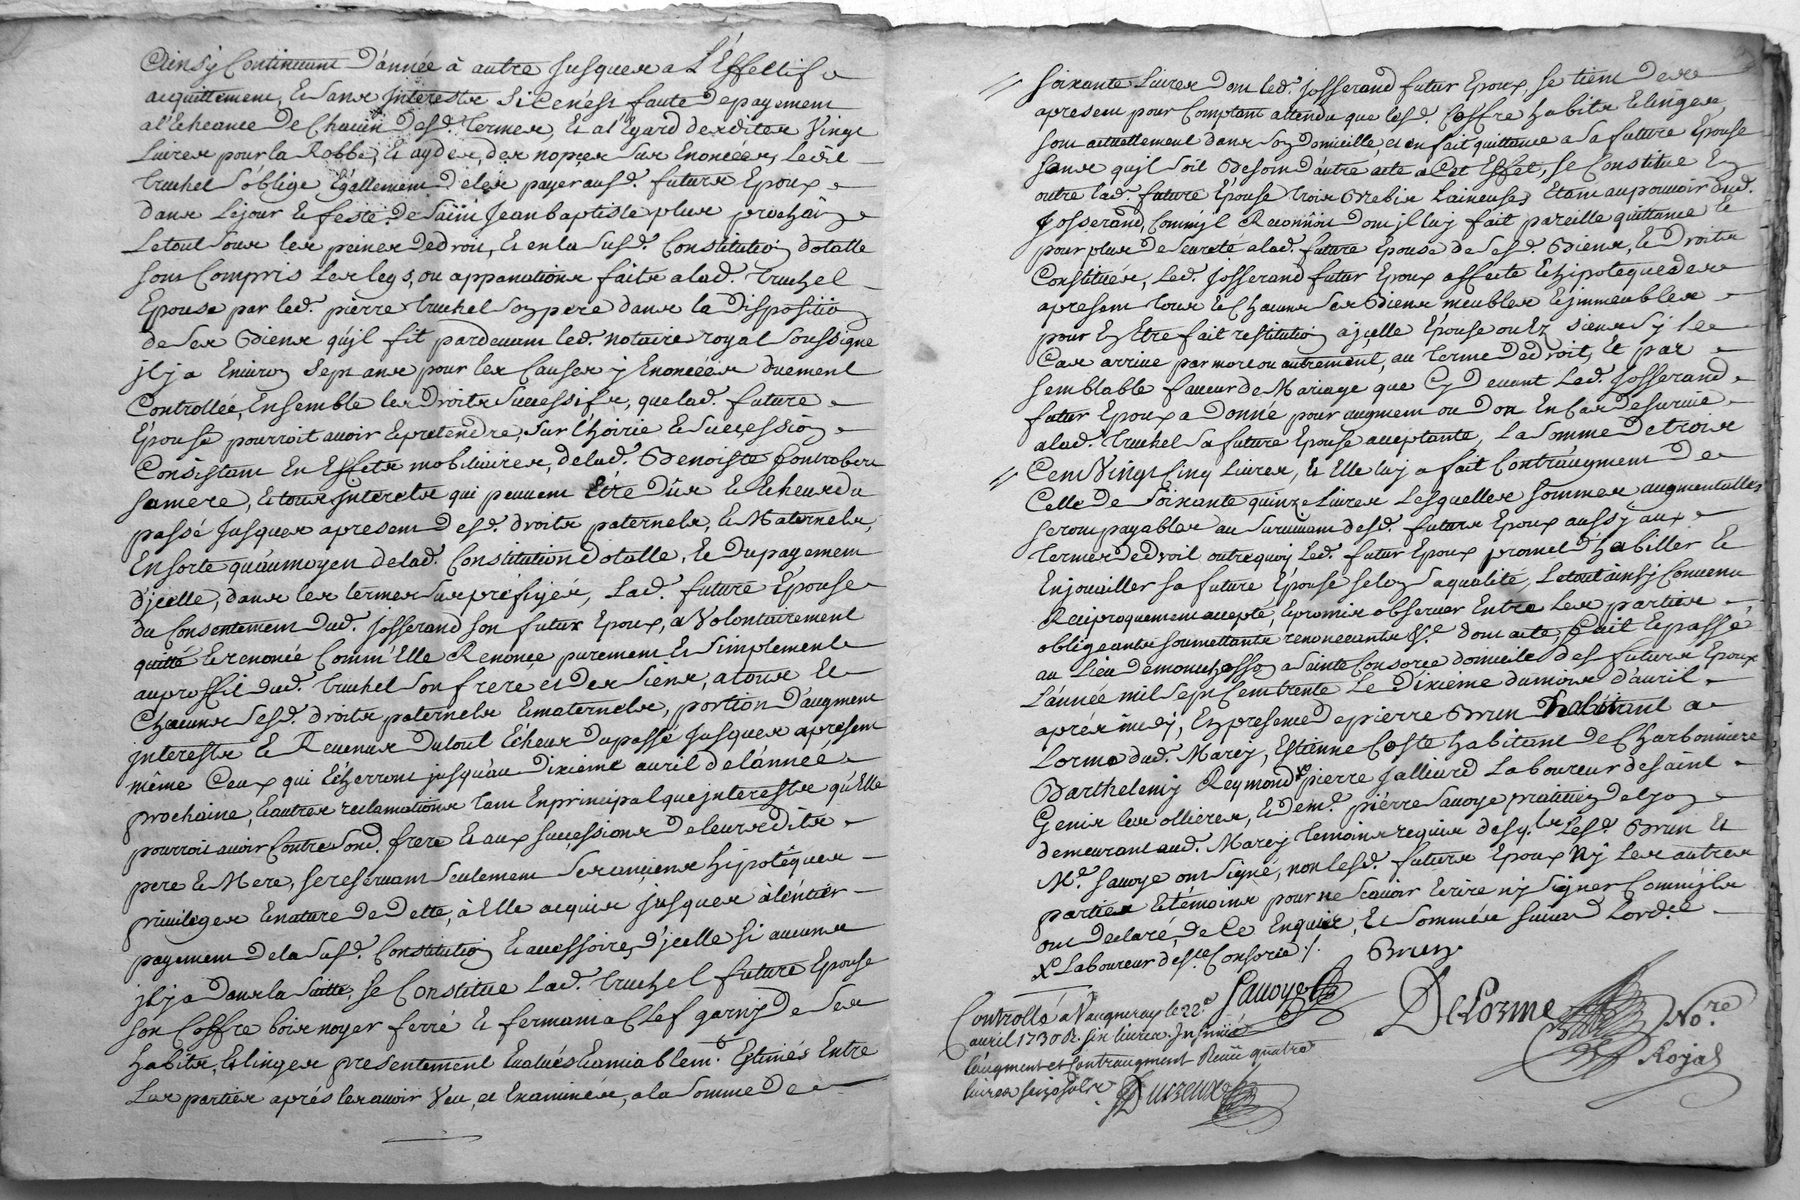 Ainsy Continuant d'année à autre Jusques a L'Effectif
acquittement, et sans Interests si ce n'est faute de payement
a l'Echeance de Chacun desd. termes, et a l'Egard desdites Vingt
Livres pour la Robbe, et aydes, des nopces sus Enoncées, Ledit
truchet s'oblige Egallement de les payer ausd. futurs Epoux
dans Le jour et feste de Saint Jean baptiste plus prochain
Le tout sous les peines de droit, et en la susd. Constitution dotalle
sont Compris Les legs, ou appanations faits a lad. truchet
Epouse par led. pierre truchet son pere dans la Disposition
de ses Biens qu'jl fit pardevant led. notaire royal soussigné
jl j a Environ sept ans pour les Causes y Enoncées duement
Controllée, Ensemble les Droits successifs, que lad. future
Epouse pourroit avoir et pretendre, sur l'hoirie et succession
Consistant En Effets mobiliaires, de lad. Benoiste
sa mere, et tous jnterets qui peuvent Etre dûs et Echeus du
passé Jusques apresent desd. droits paternels, et Maternels,
En sorte qu'au moyen de lad. Constitution dotalle, et du payement
d'jcelle, dans les termes sus préfigés, Lad. future Epouse
du Consentement dud. Josserand son futur Epoux, a Volontairement
quitté et renoncé Comm'Elle Renonce purement et simplement
au proffit dud. truchet son frere et des siens, a tous et
Chacuns sesd. droits paternels et maternels, portion d'augment
jnterests et Revenus du tout Echeus du passé Jusques apresent
même Ceux qui Echerront jusqu'au dixieme avril de l'année
prochaine, et autres reclamations tant En principal que jnterests qu'Elle
pourroit avoir Contre sond. frere et aux successions de leursdits
pere et Mere, se reservant seulement ses anciens hipotêques
privileges et nature de dette, à Elle acquis jusques à l'entier
payement de la susd. Constitution et accessoires d'jcelle si aucuns
jl j a dans la suitte, se Constitue Lad. truchet future Epouse
son Coffre bois noyer ferré et fermant a Clef garny de ses
habits, et linges presentement Evalués et amiablemt. Estimés Entre
Les parties aprés les avoir Veu, et Examinés, a la somme de
soixante Livres dont led. Josserand futur Epoux, se tient des
apresent pour Comptant attendu que lesd. Coffre habits et linges
sont actuellement dans son domicille, et en fait quittance a sa future Epouse
sans qu'jl soit Besoin d'autre acte a Cet Effet, se Constitue En
outre lad. future Epouse trois Brebis Laineuses Etant au pouvoir dud.
Josserand, Comm'jl Reconnoit dont jl luy fait pareille quittance Et
pour plus de seureté a lad. future Epouse de sesd. Biens, et Droits
Constitués, Led. Josserand futur Epoux affecte et hipoteque des
apresent tous et Chacuns ses Biens meubles et jmmeubles
pour En Etre fait restitution a jcelle Epouse ou Ez siens sj le
Cas arrive par mort ou autrement, au terme de droit, Et par
semblable faveur de Mariage que Cy devant Led. Josserand
futur Epoux a Donné pour augment ou don En Cas de survie
a lad. truchet sa future Epouse acceptante, La somme de trois
Cent Vingt Cinq Livres, et Elle luy a fait Contraugment de
Celle de soixante quinze Livres Lesquelles sommes augmentalles
seront payables au survivant desd. futurs Epoux aussy aux
termes de droit outre quoy Led. futur Epoux promet d'habiller et
Enjouailler sa future Epouse selon sa qualité, Le tout ainsy Convenu
Reciproquement accepté, et promis observer Entre Les parties
obligeants soumettants renonceants &c. dont acte, fait et passé
au Lieu de a Sainte Consorce domicile des futurs Epoux
L'année mil sept Cent trente Le Dixieme du mois d'avril
aprés mid j, En presence de pierre Brun habitant a
Lorme dud. Marcy, Estienne Coste habitant de Charbonniere
Barthelemy Reymond x pierre Jallieurd Laboureur de saint
Genis Les ollieres, et de Me. pierre Savoye praticien de Lyon
demeurant aud. Marcy temoins requis desq.ls Lesd. Brun et
Me. Savoye ont signé, non lesd. futurs Epoux nj Les autres
parties et témoins pour ne sçavoir Ecrire nj signer Comm'jls
ont declaré, de Ce Enquis, Et sommés suivt. Lord.ce
x Laboureur de ste Consorce /. Brun
Savoye
DeLorme No.re
Royal
Controllé a Vaugneray le 22e
avril 1730 R. six livres Insinué
l'augment et Contraugment Reçu quatre
livres seize sols
Dureux